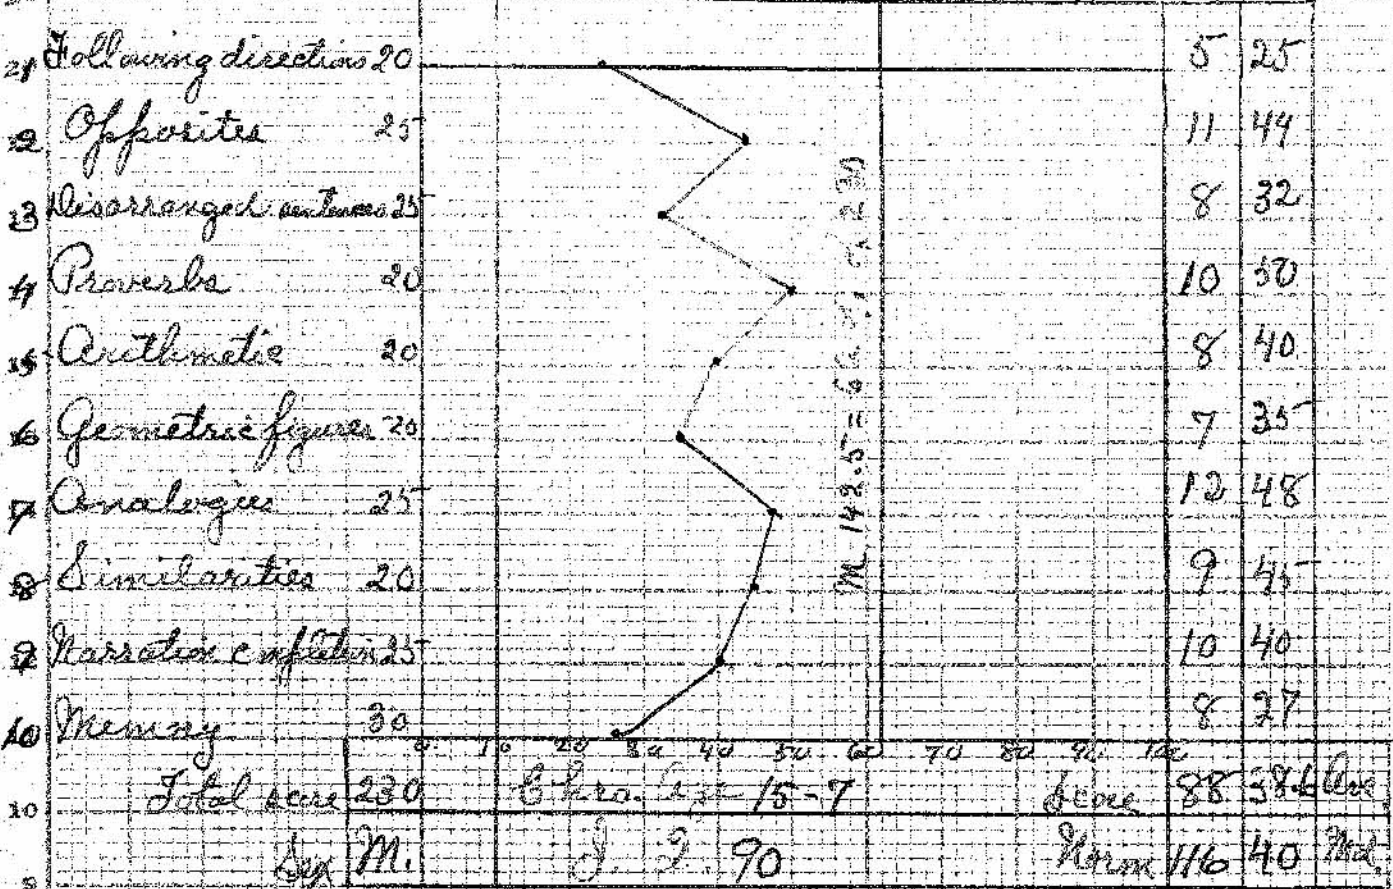 21 Following directions 20 5 25
2 Opposites 25 11 44
3 Disarranged sentences 25 8 32
4 Proverbs 20 10 50
5 Arithmetic 20 8 40
6 Geometric figures 20 7 35
7 Analogies 25 12 48
8 Similarities 20 9 45
9 Narration completion 25 10 40
10 Memory 30 8 27
0 10 20 30 40 50 60 70 80 90 100
M 142.5 = 230
10 Total score 230 Chro. 15-7 Score 88 38.6 Ave.
Sex M. I. Q. 90 Norm 116 40 Md.
9